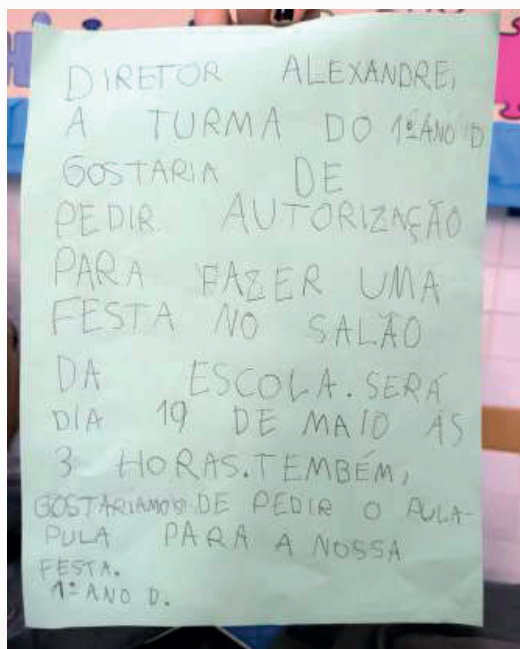 DIRETOR ALEXANDRE,
A TURMA DO 1º ANO D
GOSTARIA DE
PEDIR AUTORIZAÇÃO
PARA FAZER UMA
FESTA NO SALÃO
DA ESCOLA. SERÁ
DIA 19 DE MAIO ÀS
3 HORAS. TEMBÉM,
GOSTARIAMOS DE PEDIR O PULA-
PULA PARA A NOSSA
FESTA.
1º ANO D.